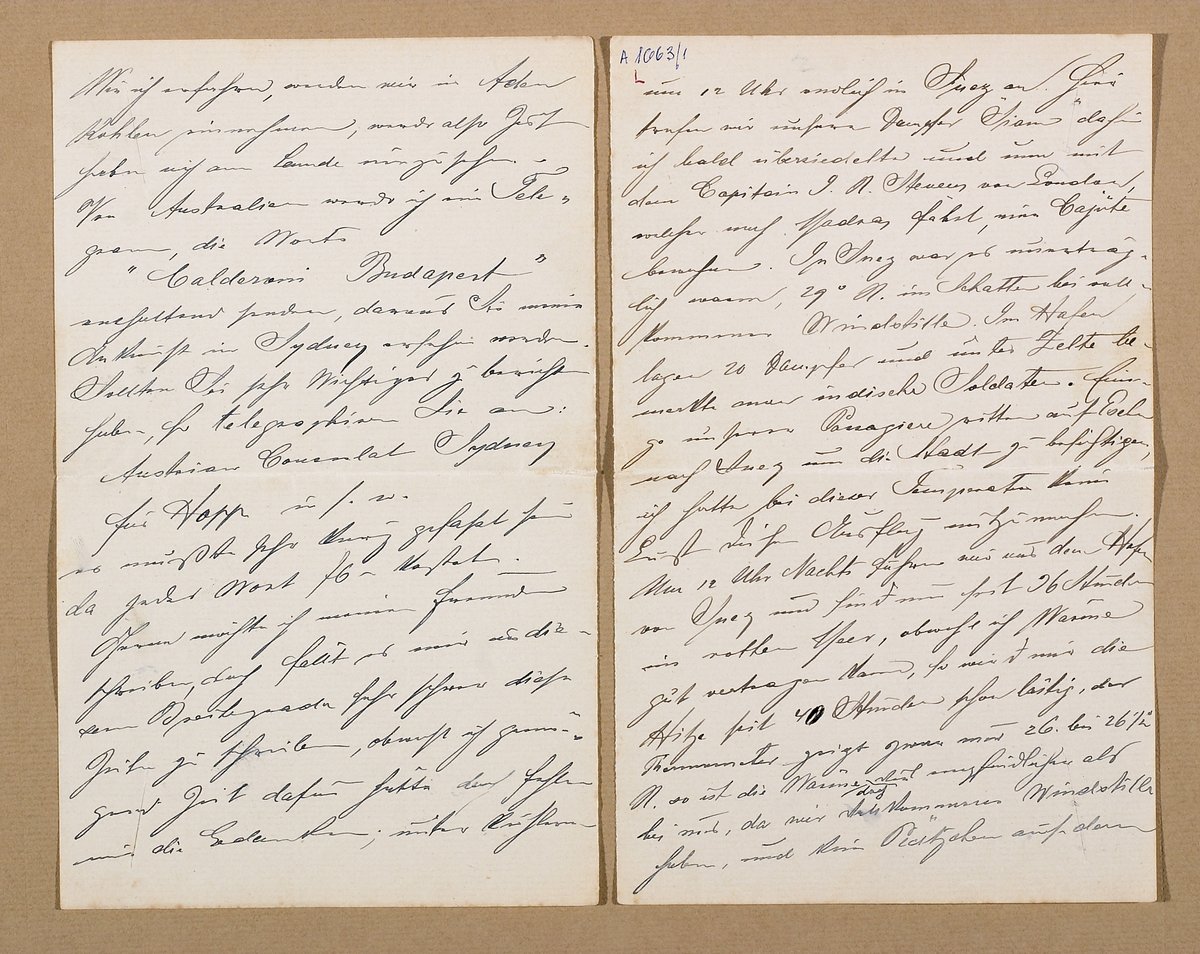 Wie ich erfahren, werden wir in Aden
Kohlen einnehmen, werde also Zeit
haben mich am Lande umzusehen. –
Von Australien werde ich ein Tele-
gram, die Worte
"Calderoni Budapest"
enthaltend senden, daraus Sie meine
Ankunft in Sydney ersehen werden.
Sollten Sie sehr Wichtiges zu berichten
haben, so telegraphiren Sie an:
Austrian Consulat Sydney
für Hopp u. s. w.
es müßte sehr kurz gefaßt sein
da jedes Wort f6 – kostet. –
Gerne möchte ich meinen Freunden
schreiben, doch fällt es mir in die-
sem Breitegrade sehr schwer diese
Zeilen zu schreiben, obwohl ich genü-
gend Zeit dafür hätte doch fehlen
mir die Gedanken; unter kühlerem
A 1663/1
L
um 12 Uhr endlich in Suez an. Hier
trafen wir unseren Dampfer "Siam" dahin
ich bald übersiedelte und nun mit
dem Capitain J. R. Stevens von London,
welcher nach Madras fährt, eine Cajüte
bewohne. In Suez war es unerträg-
lich warm, 29° R. im Schatten bei voll-
kommener Windstille. Im Hafen
lagen 20 Dampfer und unter Zelte be-
merkte man indische Soldaten. Eini-
ge unserer Passagiere ritten auf Eseln
nach Suez um die Stadt zu besichtigen,
ich hatte bei dieser Temperatur keine
Lust diesen Ausflug mitzumachen.
Um 12 Uhr Nachts fuhren wir aus dem Hafen
von Suez und sind nun seit 36 Stunden
im rothen Meer, obwohl ich Wärme
gut vertragen kann, so wird mir die
Hitze seit 40 Stunden schon lästig, der
Thermometer zeigt zwar nur 26. bis 26½
R. so ist die Wärme doch empfindlicher als
bei uns, da wir vollkommene Windstille
haben, und kein Plätzchen auf dem